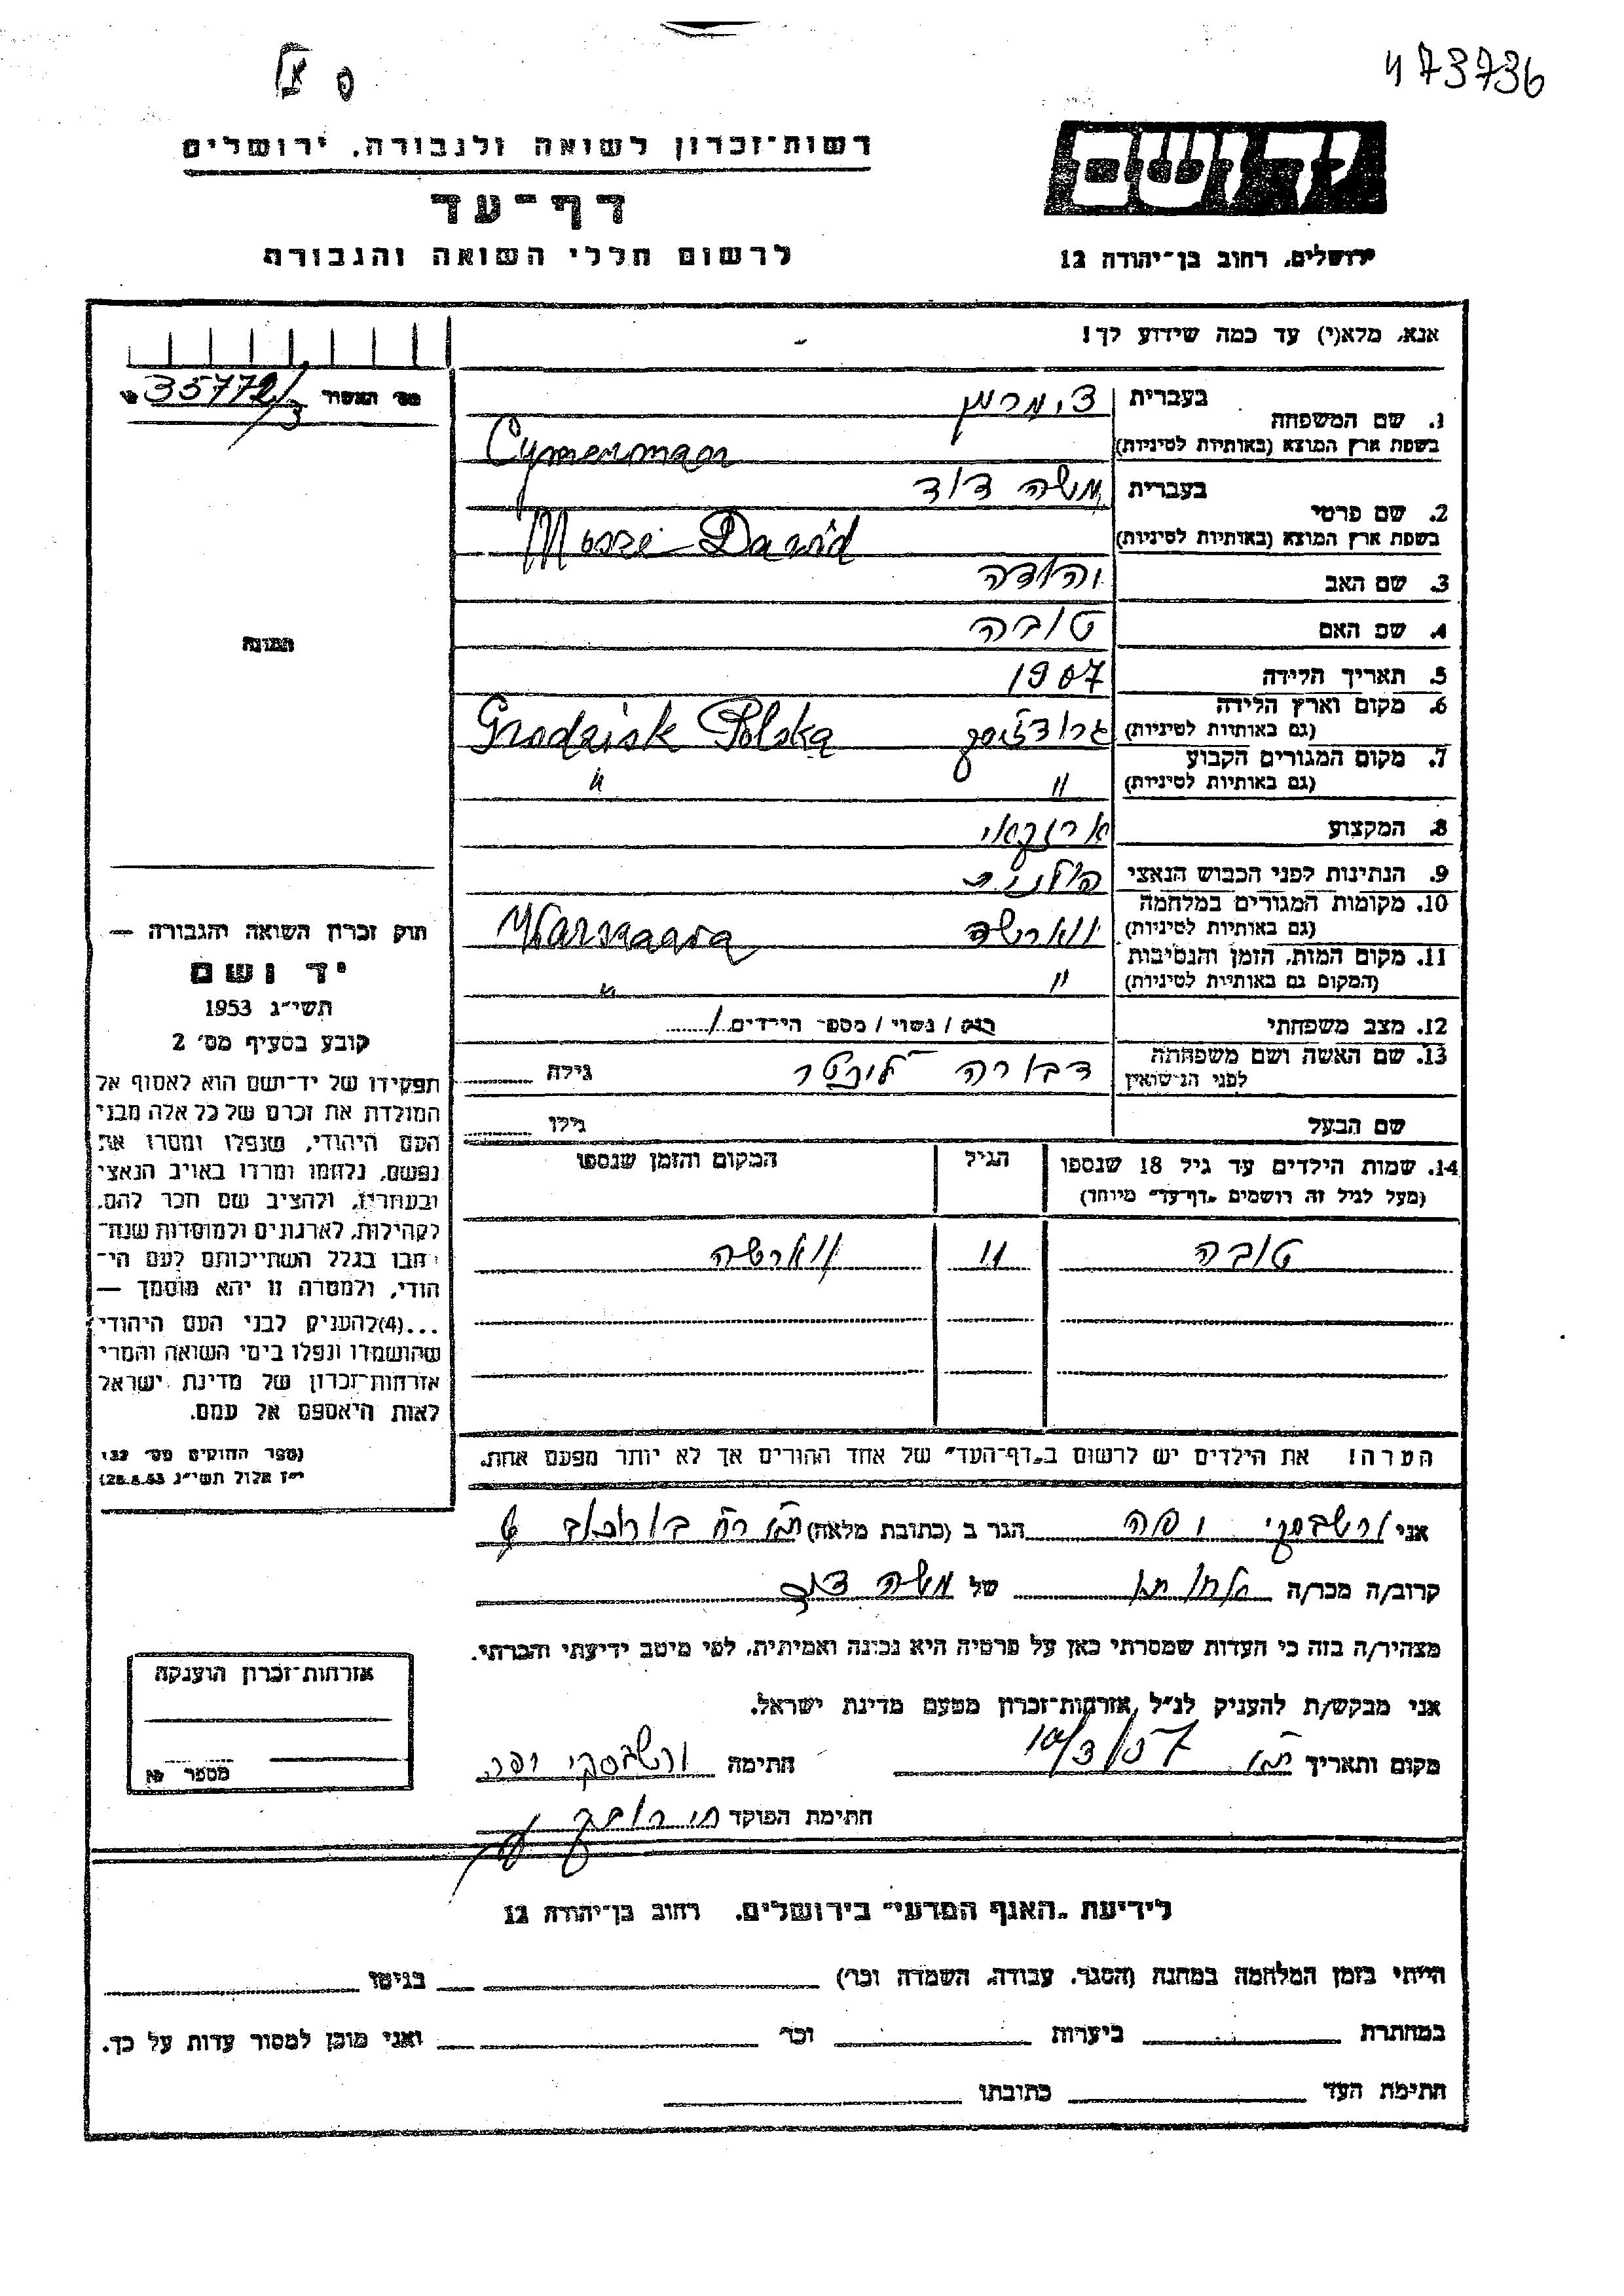 473736
רשות־זכרון לשואה ולגבורה, ירושלים
דף־עד
לרשום חללי השואה והגבורה
ירושלים, רחוב בן־יהודה 12
אנא, מלא(י) עד כמה שידוע לך!
מס׳ האשור 35772/3
1. שם המשפחה
בעברית צימרמן
בשפת ארץ המוצא (באותיות לטיניות) Cymerman
2. שם פרטי
בעברית משה דוד
בשפת ארץ המוצא (באותיות לטיניות) Dawid
3. שם האב יהודה
4. שם האם טובה
5. תאריך הלידה 1907
6. מקום וארץ הלידה
(גם באותיות לטיניות) גרודז׳יסק Grodzisk Polska
7. מקום המגורים הקבוע
(גם באותיות לטיניות) " "
8. המקצוע
9. הנתינות לפני הכבוש הנאצי פולנית
10. מקומות המגורים במלחמה
(גם באותיות לטיניות) ווארשה Warszawa
11. מקום המות, הזמן והנסיבות
(המקום גם באותיות לטיניות) " "
12. מצב משפחתי רוק / נשוי / מספר הילדים 1
13. שם האשה ושם משפחתה
לפני הנישואין דבורה גילה
שם הבעל גילו
14. שמות הילדים עד גיל 18 שנספו
(מעל לגיל זה רושמים „דף־עד״ מיוחד)
הגיל
המקום והזמן שנספו
טובה 11 ווארשה
תמונה
חוק זכרון השואה והגבורה —
יד ושם
תשי״ג 1953
קובע בסעיף מס׳ 2
תפקידו של יד־ושם הוא לאסוף אל
המולדת את זכרם של כל אלה מבני
העם היהודי, שנפלו ומסרו את
נפשם, נלחמו ומרדו באויב הנאצי
ובעוזריו, ולהציב שם וזכר להם,
לקהילות, לארגונים ולמוסדות שנח־
רבו בגלל השתייכותם לעם הי־
הודי, ולמטרה זו יהא מוסמך —
...(4)להעניק לבני העם היהודי
שהושמדו ונפלו בימי השואה והמרי
אזרחות־זכרון של מדינת ישראל
לאות היאספם אל עמם.
(ספר החוקים מס׳ 132
י״ז אלול תשי״ג 28.8.53)
הערה! את הילדים יש לרשום ב„דף־העד״ של אחד ההורים אך לא יותר מפעם אחת.
אני ורשבסקי יפה הגר ב (כתובת מלאה)
קרוב/ה מכר/ה של משה דוד
מצהיר/ה בזה כי העדות שמסרתי כאן על פרטיה היא נכונה ואמיתית, לפי מיטב ידיעתי והכרתי.
אני מבקש/ת להעניק לנ״ל אזרחות־זכרון מטעם מדינת ישראל.
מקום ותאריך ת״א 10/3/57 חתימה ורשבסקי יפה
חתימת הפוקד
אזרחות־זכרון הוענקה
מספר
לידיעת „האגף המדעי״ בירושלים, רחוב בן־יהודה 12
הייתי בזמן המלחמה במחנה (הסגר, עבודה, השמדה וכו׳) בגיטו
במחתרת ביערות וכו׳ ואני מוכן למסור עדות על כך.
חתימת העד כתובתו